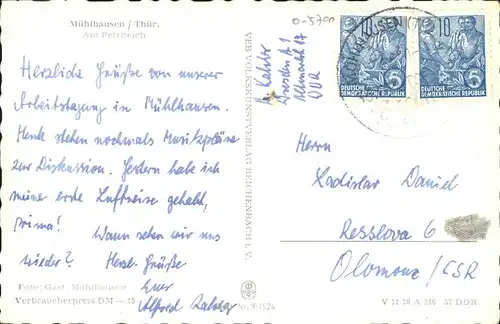 Mühlhausen / Thür.
Am Petriteich
Herzliche Grüße von unserer
Arbeitstagung in Mühlhausen.
Heute stehen nochmals Musikpläne
zur Diskussion. Gestern habe ich
meine erste Luftreise gehabt,
prima! Wann sehen wir uns
wieder? Herzl. Grüße
Euer
Alfred
Foto: Gust. Mühlhausen
Verbraucherpreis DM —.15
VEB VOLKSKUNSTVERLAG REICHENBACH I. V.
Nr. 9/1524
0-5700
Dresden A 1
Altmarkt 17
DDR
MÜHLHAUSEN (TH
10
10
DEUTSCHE
DEMOKRATISCHE REPUBLIK
5
DEUTSCHE
DEMOKRATISCHE REPUBLIK
5
Herrn
Ladislav Daniel
Resslova 6
Olomouc / ČSR
V 11-28 A 346 57 DDR